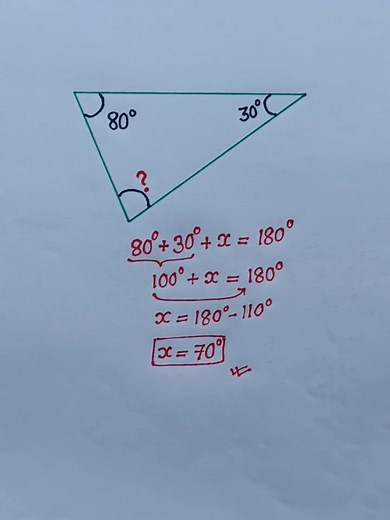 80° 30°
?
80°+30°+x = 180°
100°+x = 180°
x = 180°-110°
x = 70°